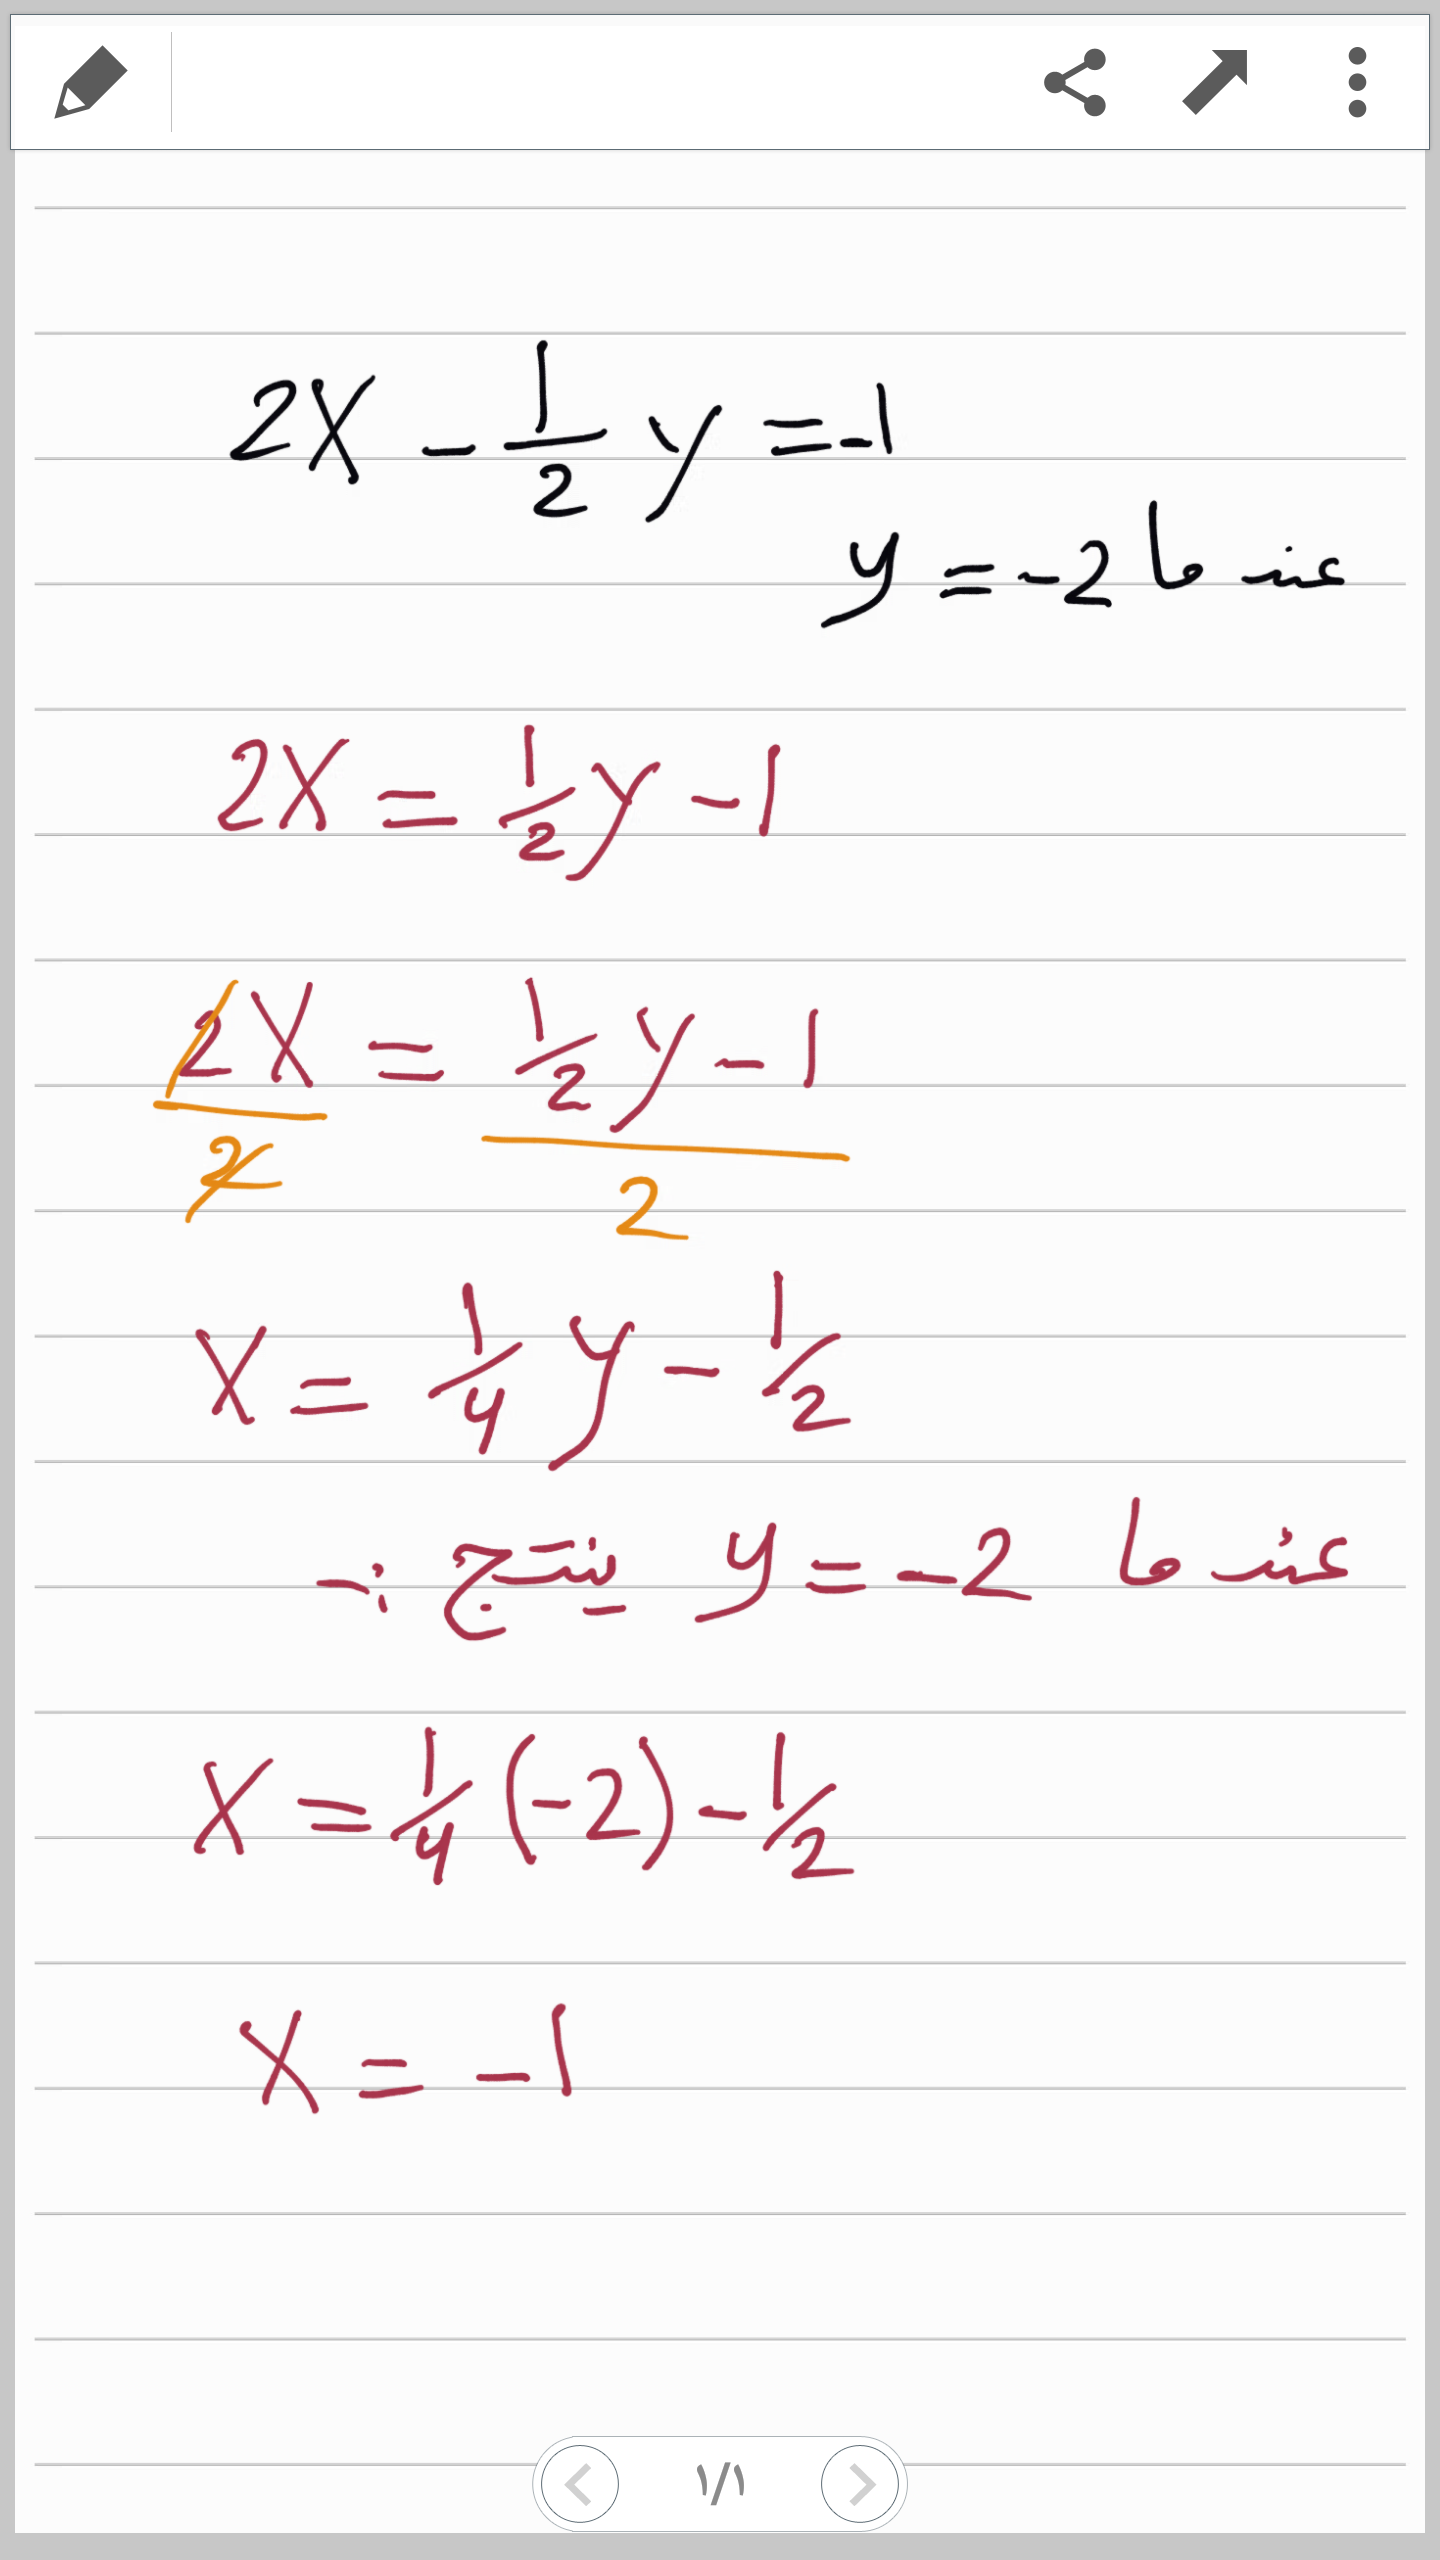 2X - 1/2 y = -1
عندما y = -2
2X = 1/2 y - 1
2X/2 = (1/2 y - 1)/2
X = 1/4 y - 1/2
عندما y = -2 ينتج :-
X = 1/4 (-2) - 1/2
X = -1
١/١